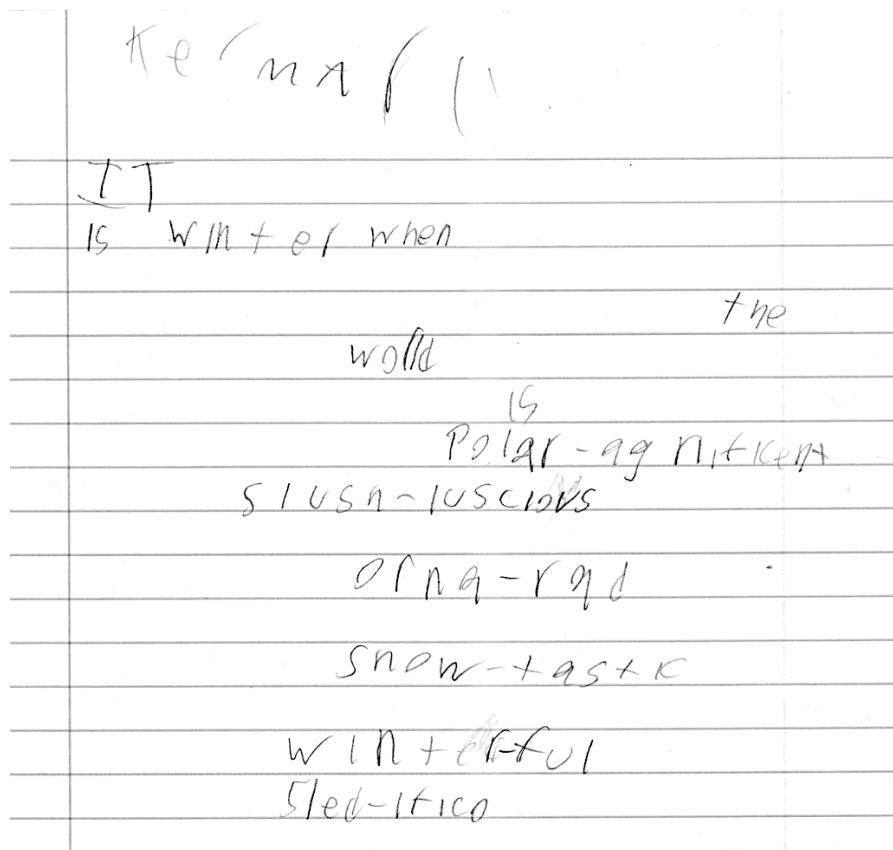 IT
is winter when
the
world
is
Polar-agnificent
slush-luscious
orna-rad
snow-tastic
winter-ful
Sled-ifico